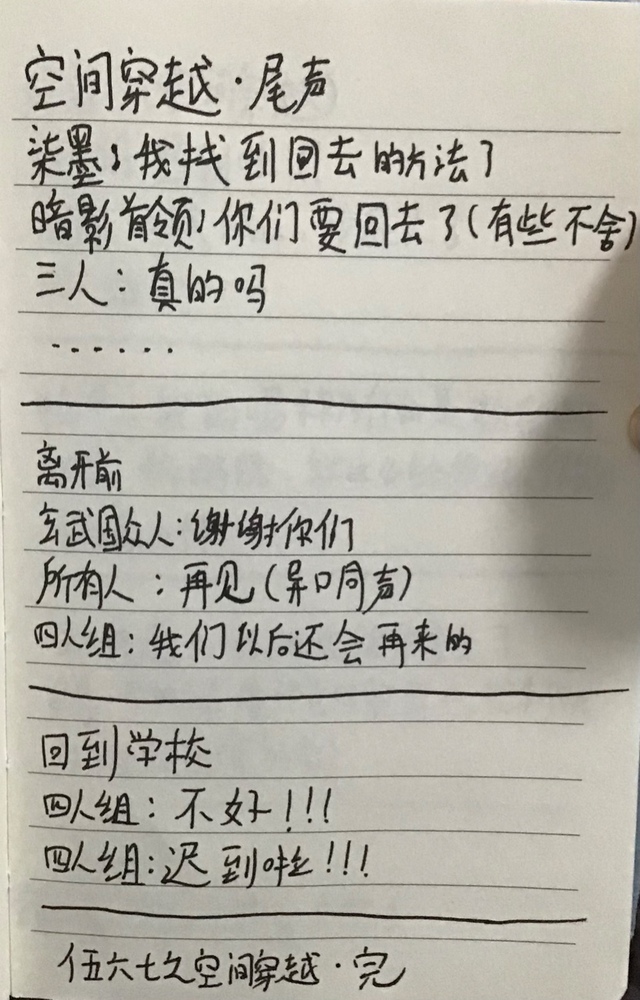 空间穿越·尾声
柒墨：我找到回去的方法了
暗影首领：你们要回去了(有些不舍)
三人：真的吗
······
离开前
玄武国众人：谢谢你们
所有人：再见(异口同声)
四人组：我们以后还会再来的
回到学校
四人组：不好!!!
四人组：迟到啦!!!
伍六七之空间穿越·完